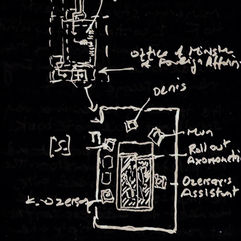 Office of Minister
of Foreign Affairs
Denis
Mun
[S]
Rollout
Axonometric
Ozersay's
Assistant
K. Ozersay